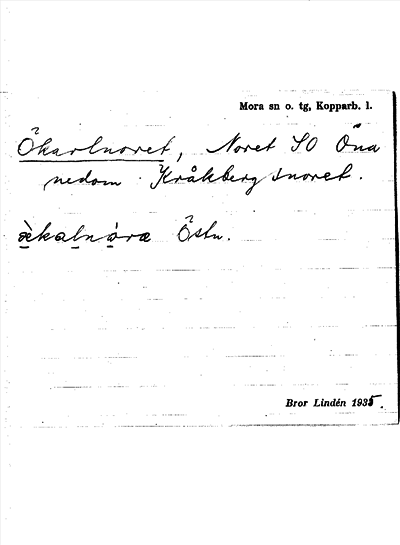 Mora sn o. tg, Kopparb. l.
Ökarlnoret, Noret SO Öna
nedom Kråkbergsnoret.
ὲkalnȧræ Östn.
Bror Lindén 1935.